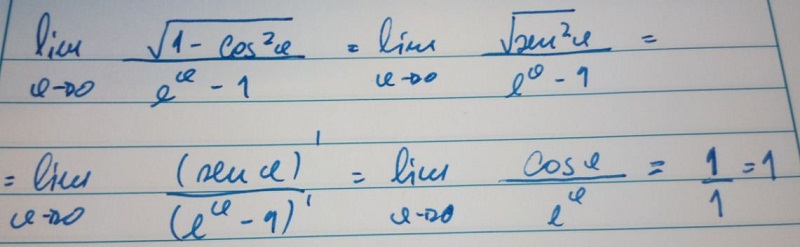 lim_{x→0} \frac{\sqrt{1 - cos²x}}{e^x - 1} = lim_{x→0} \frac{\sqrt{sen²x}}{e^x - 1} =
= lim_{x→0} \frac{(sen x)'}{(e^x - 1)'} = lim_{x→0} \frac{cos x}{e^x} = \frac{1}{1} = 1